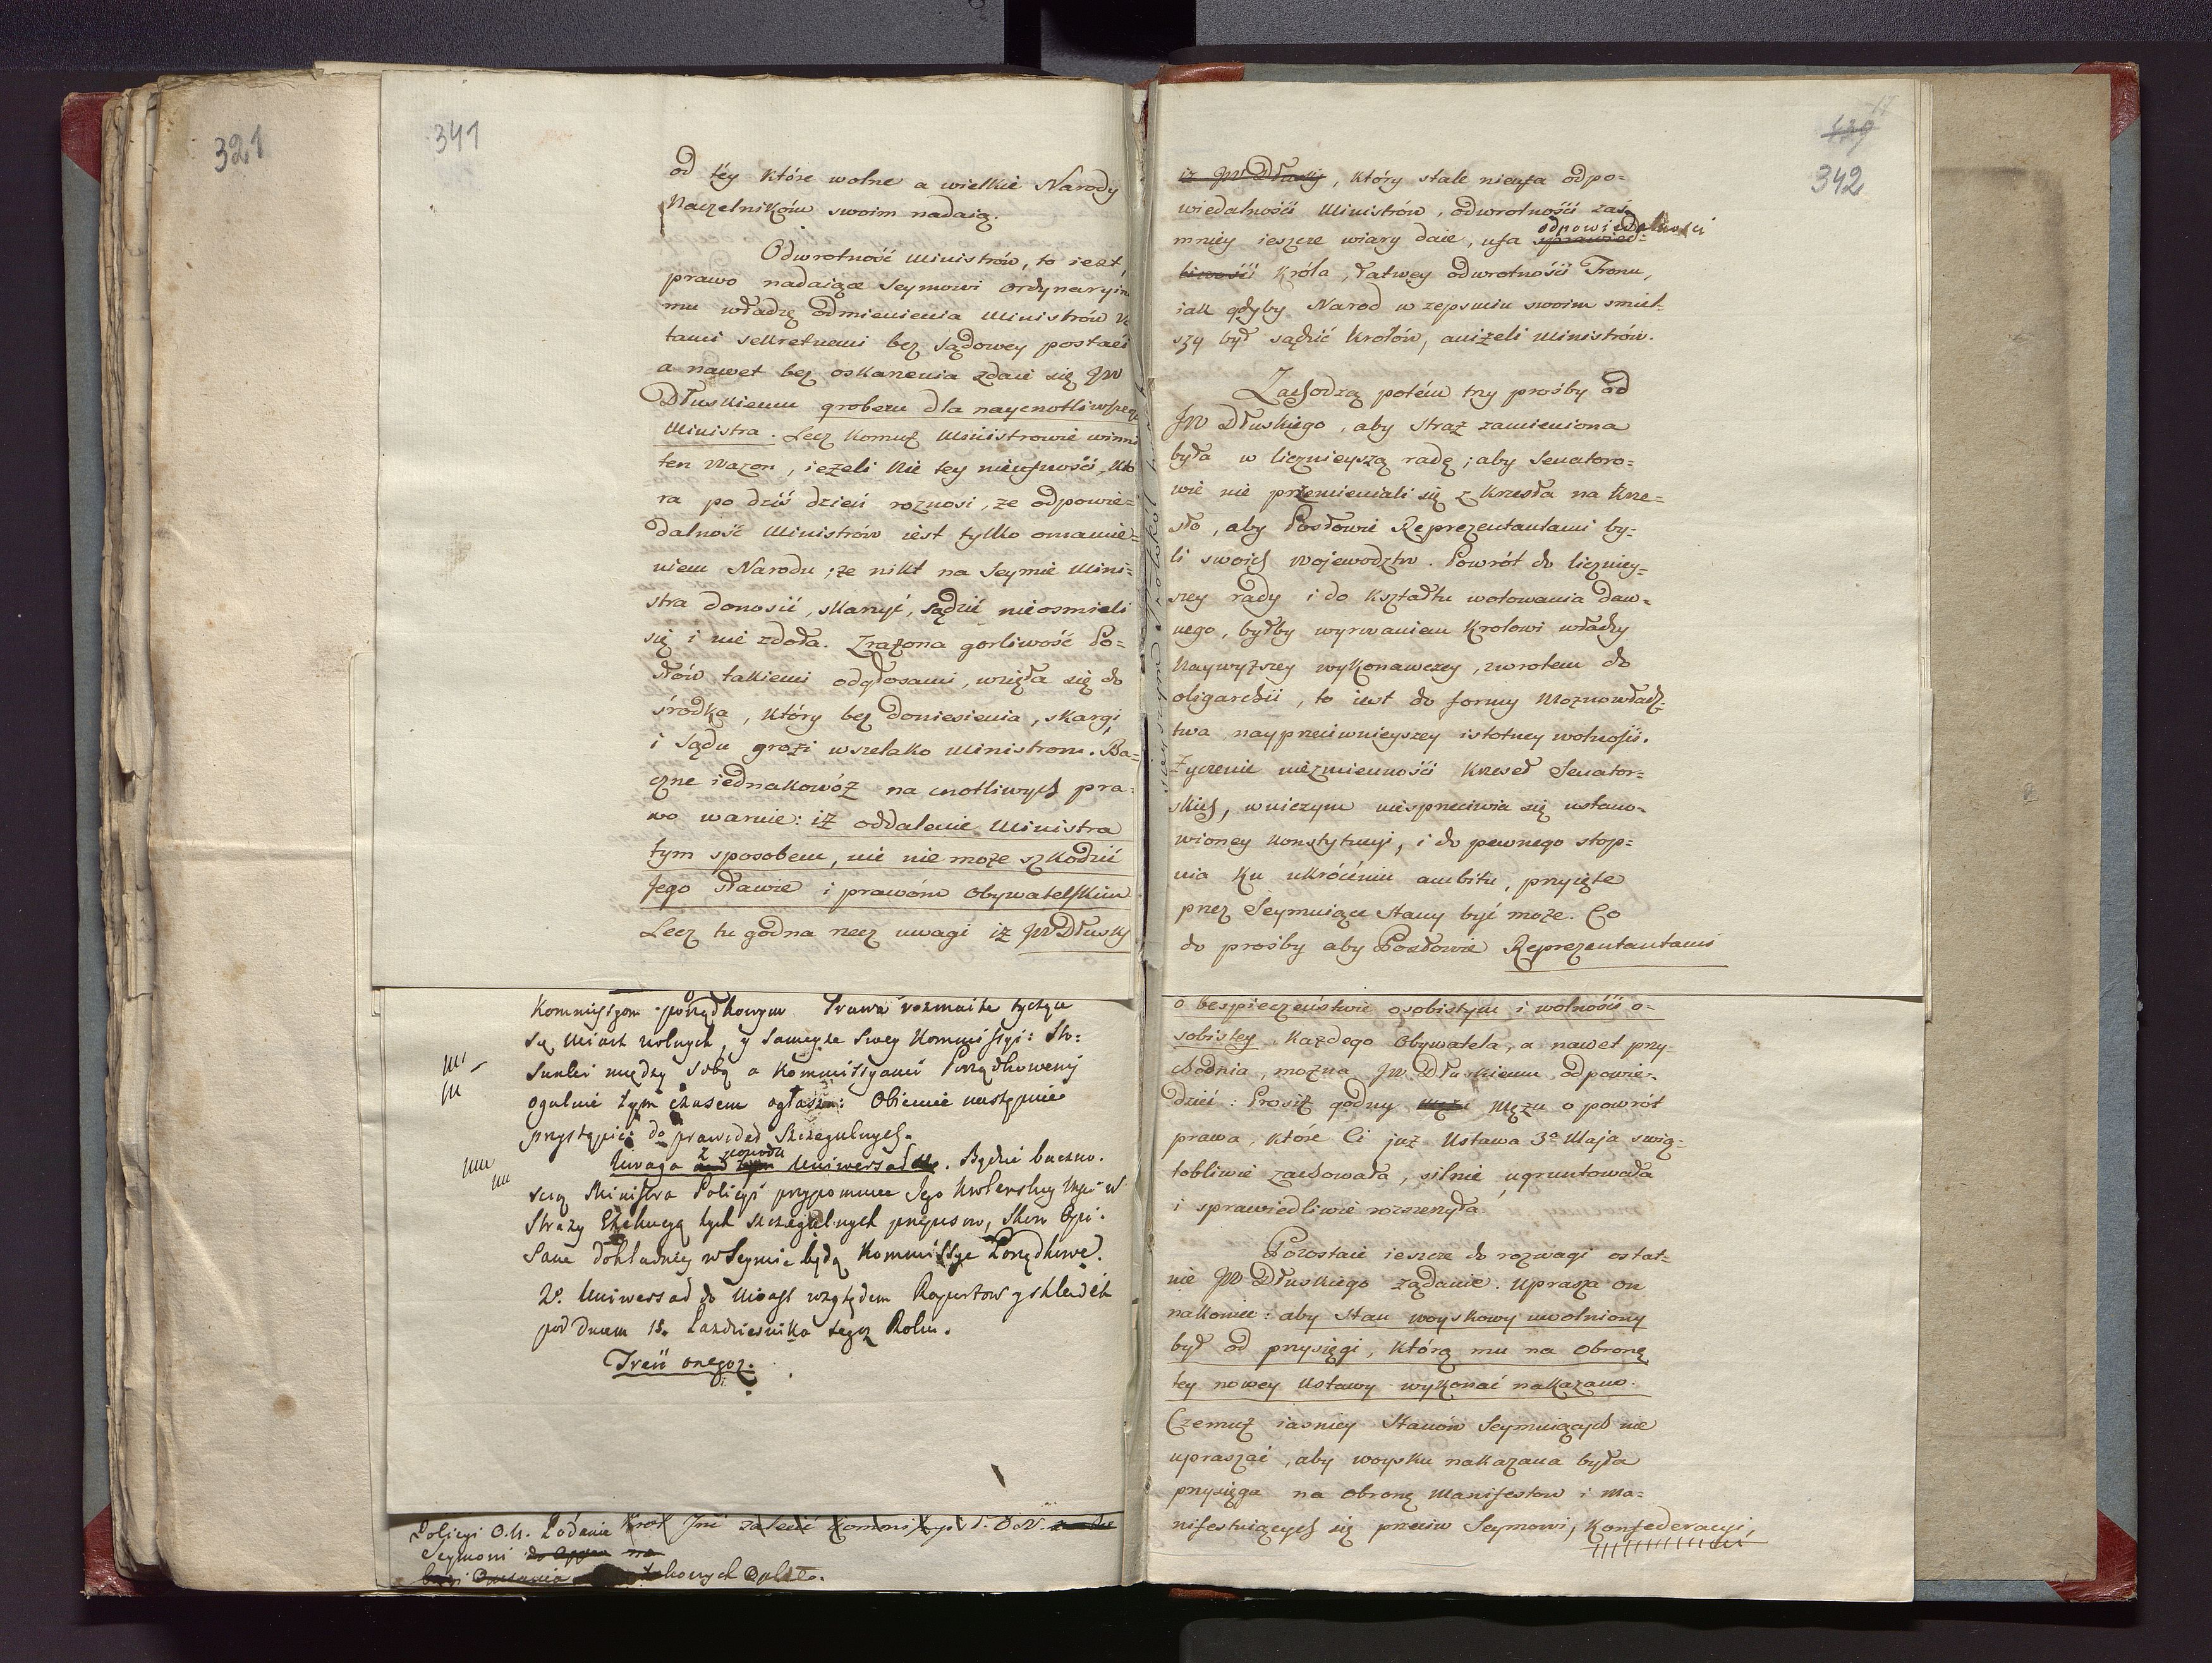 321
341
od téy które wolne a wielkie Narody
Naczelnikóm swoim nadaią.
Odwrotność Ministrów, to iest,
prawo nadaiące Seymowi Ordynaryin
mu władzę odmienienia Ministrów
tami sekretnemi bez sądowey postaci
a nawet bez oskarzenia zdaie się JW
Dłuskiemu grobem dla naycnotliwszego
Ministra. Lecz komuż Ministrowie winni
ten wazon, ieżeli nie tey nieufności, któ
ra po dziś dzień roznosi, że odpowie=
dalność Ministrów iest tylko omamie=
niem Narodu; że nikt na Seymie Mini=
stra donosić, skarzyć, sądzić nieosmieli
się i nie zdoła. Zrażona gorliwość Po=
słów takiemi odgłosami, wzięła się do
środka, który bez doniesienia, skargi,
i sądu grozi wszelako Ministrom. Ba=
czne iednakowóż na cnotliwych pra=
wo warnie: iż oddalenie Ministra
tym sposobem, nie nie może szkodzić
Jego sławie i prawóm Obywatelskim.
Lecz tu godna rzecz uwagi iż JW Dłusky
Kommissyom porządkowym Prawa rozmaite tyczące
się Miast Wolnych, y samęże swey Kommissyi: Sto:
sunki między sobą a Kommissyami Porządkowemi
ogulnie tym czasem ogłasza: Obiecuie następnie
przystąpić do prawideł szczegulnych.
z powodu
Uwaga nad tym Uniwersałem. Będzie baczno.
scią Ministra Policyi przypomniec Jego Krolewskiey Mci w
Strazy Exekucyą tych szczegulnych przepisow, skoro Opi.
sane dokładniey w Seymie będą Kommissye Porządkowe.
2o. Uniwersał do Miast względem Raportow y składek
pod dniem 18. Pazdziernika tegoż Roku.
Treść onegoż.
Policyi O.N. Podanie Krok Jnć zalecić Kommissyi P.O.N.
Seymowi
takowych Opłat.
129
342
iż JW Dłusky, który stale nieufa odpo=
wiedalności Ministrów, odwrotności zaś
mniey ieszcze wiary daie, ufa sprawied=
odpowiedalności
liwości Króla, łatwey odwrotności Tronu,
iak gdyby Narod w zepsuciu swoim smiel=
szy był sądzić Krolów, aniżeli Ministrów.
Zachodzą potém trzy prośby od
JW Dłuskiego, aby Straż zamieniona
była w licznieyszą radę; aby Senatoro=
wie nie przemieniali się z krzesła na krze=
sło, aby Posłowie Reprezentantami by=
li swoich Wojewodztw. Powrót do liczniey=
szey rady i do kształtu wotowania daw=
nego, byłby wyrwaniem Krolowi władzy
Naywyższey wykonawczey, zwrotem do
oligarchii, to iest do formy Możnowładz=
twa nayprzeciwnieyszey istotney wolności.
Życzenie niezmienności Krzeseł Senator=
skich, wniczym niesprzeciwia się ustano=
wioney konstytucyi, i do pewnego stop=
nia ku ukróceniu ambitu, przyięte
przez Seymuiące Stany być może. Co
do prośby aby Posłowie Reprezentantami
o bespieczeństwie osobistym i wolności o=
sobistey każdego Obywatela, a nawet przy=
chodnia, można JW. Dłuskiemu odpowie=
dzieć: Prosisz godny Męże Mężu o powrót
prawa, które Ci już Ustawa 3o Maja swią=
tobliwie zachowała, silnie ugruntowała
i sprawiedliwie rozszerzyła.
Pozostaie ieszcze do rozwagi ostat=
nie JW Dłuskiego żądanie. Uprasza on
nakoniec: aby Stan woyskowy uwolniony
był od przysięgi, którą mu na Obronę
tey nowey Ustawy wykonać nakazano.
Czemuż iasniey Stanów Seymuiących nie
upraszać, aby woysku nakazana była
przysięga na obronę Manifestow i Ma=
nifestuiących się przeciw Seymowi, Konfederacyi,